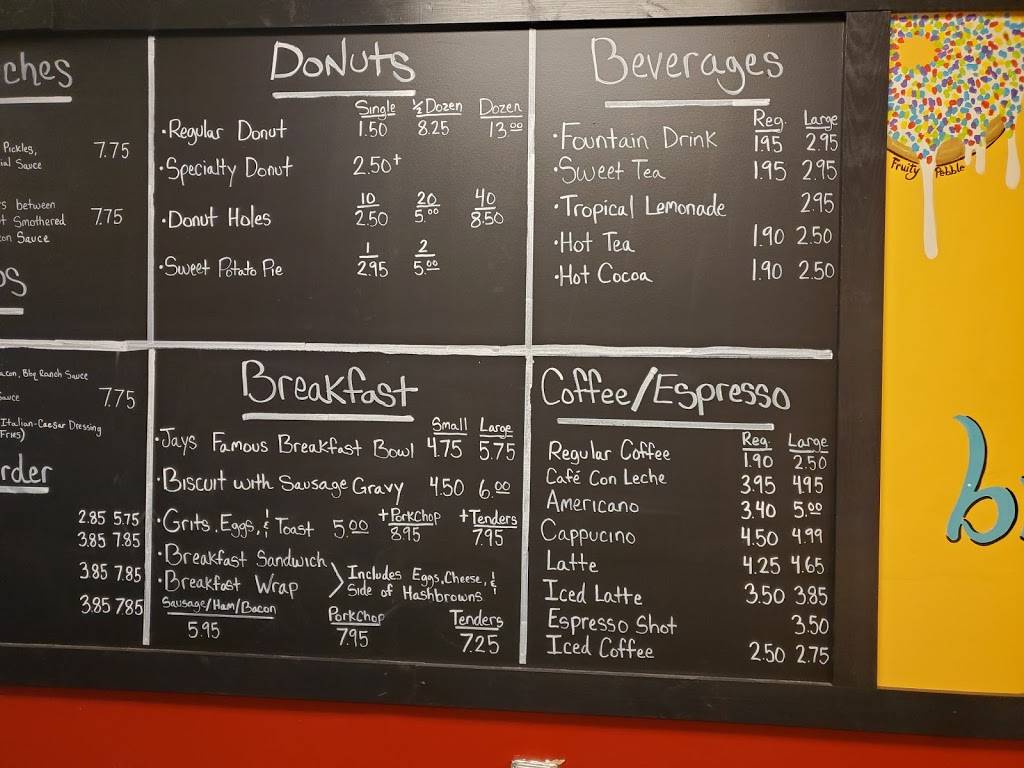 ches
Pickles,
ial Sauce 7.75
s between
t Smothered 7.75
on Sauce
os
acon, Bbq Ranch Sauce
Sauce 7.75
Italian-Caesar Dressing
Fries)
rder
2.85 5.75
3.85 7.85
3.85 7.85
3.85 7.85
Donuts
Single ½ Dozen Dozen
•Regular Donut 1.50 8.25 13.00
•Specialty Donut 2.50+
10 20 40
•Donut Holes 2.50 5.00 8.50
1 2
•Sweet Potato Pie 2.95 5.00
Beverages
Reg. Large
•Fountain Drink 1.95 2.95
•Sweet Tea 1.95 2.95
•Tropical Lemonade 2.95
•Hot Tea 1.90 2.50
•Hot Cocoa 1.90 2.50
Breakfast
Small Large
•Jays Famous Breakfast Bowl 4.75 5.75
•Biscuit with Sausage Gravy 4.50 6.00
+Porkchop +Tenders
•Grits, Eggs, & Toast 5.00 8.95 7.95
•Breakfast Sandwich
•Breakfast Wrap
Includes Eggs, Cheese, &
Side of Hashbrowns
Sausage/Ham/Bacon Porkchop Tenders
5.95 7.95 7.25
Coffee/Espresso
Reg. Large
Regular Coffee 1.90 2.50
Café Con Leche 3.95 4.95
Americano 3.40 5.00
Cappucino 4.50 4.99
Latte 4.25 4.65
Iced Latte 3.50 3.85
Espresso Shot 3.50
Iced Coffee 2.50 2.75
Fruity Pebble
b